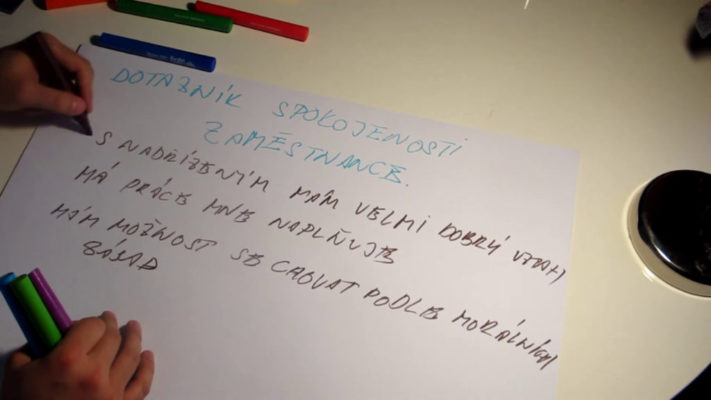 DOTAZNÍK SPOKOJENOSTI
ZAMĚSTNANCE.
S NADŘÍZENÝM MÁM VELMI DOBRÝ VZTAH
MÁ PRÁCE MNE NAPLŇUJE
MÁM MOŽNOST SE CHOVAT PODLE MORÁLNÍCH
ZÁSAD